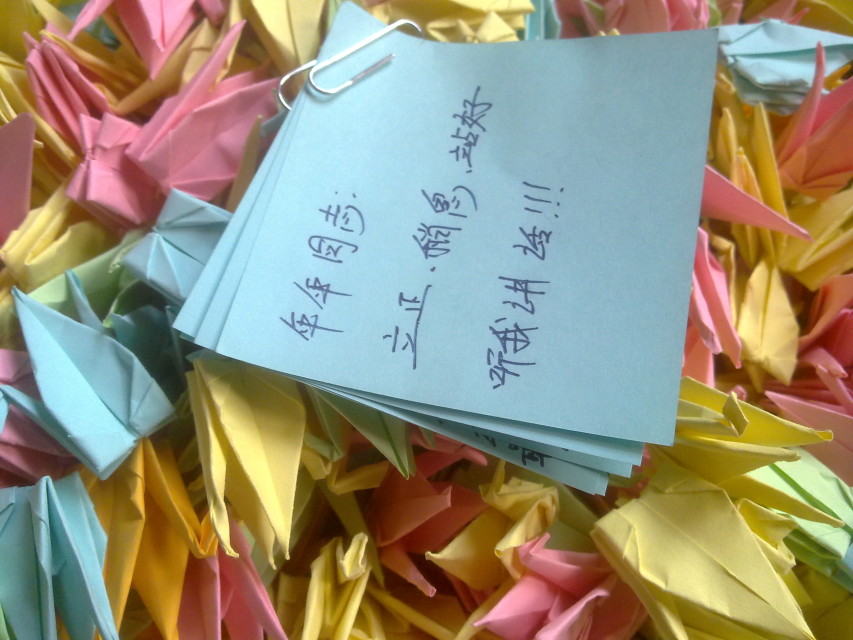 伞伞同志:
立正、稍息、站好
听我讲话!!!